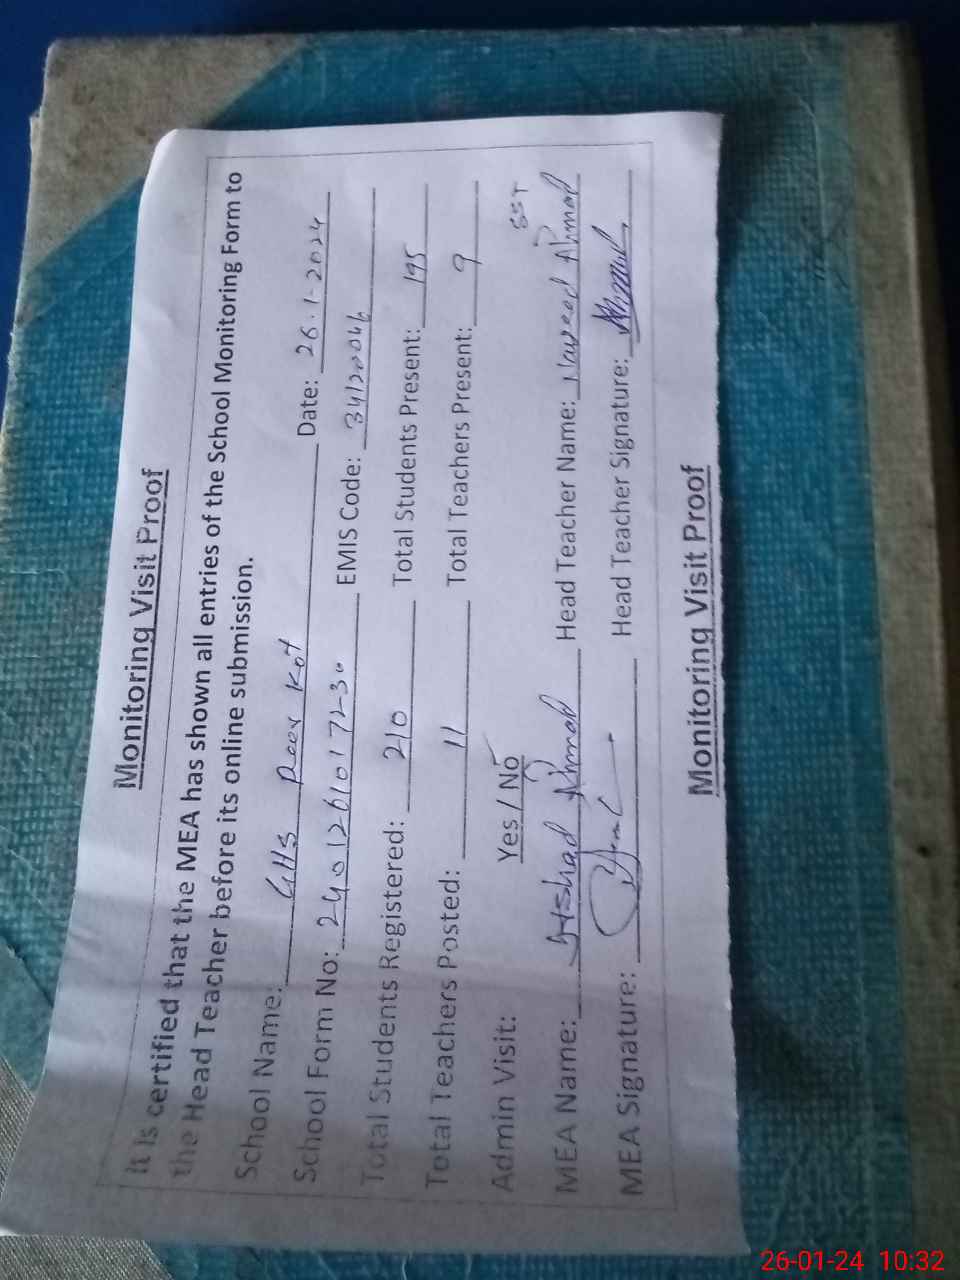 Monitoring Visit Proof
It is certified that the MEA has shown all entries of the School Monitoring Form to
the Head Teacher before its online submission.
School Name: GHS Deev Kot Date: 26.1-2024
School Form No: 24012610172-30 EMIS Code: 34120046
Total Students Registered: 210 Total Students Present: 195
Total Teachers Posted: 11 Total Teachers Present: 9
Admin Visit: Yes / No SST
MEA Name: Irshad Ahmad Head Teacher Name: Naveed Ahmad
MEA Signature: Head Teacher Signature:
Monitoring Visit Proof
26-01-24 10:32